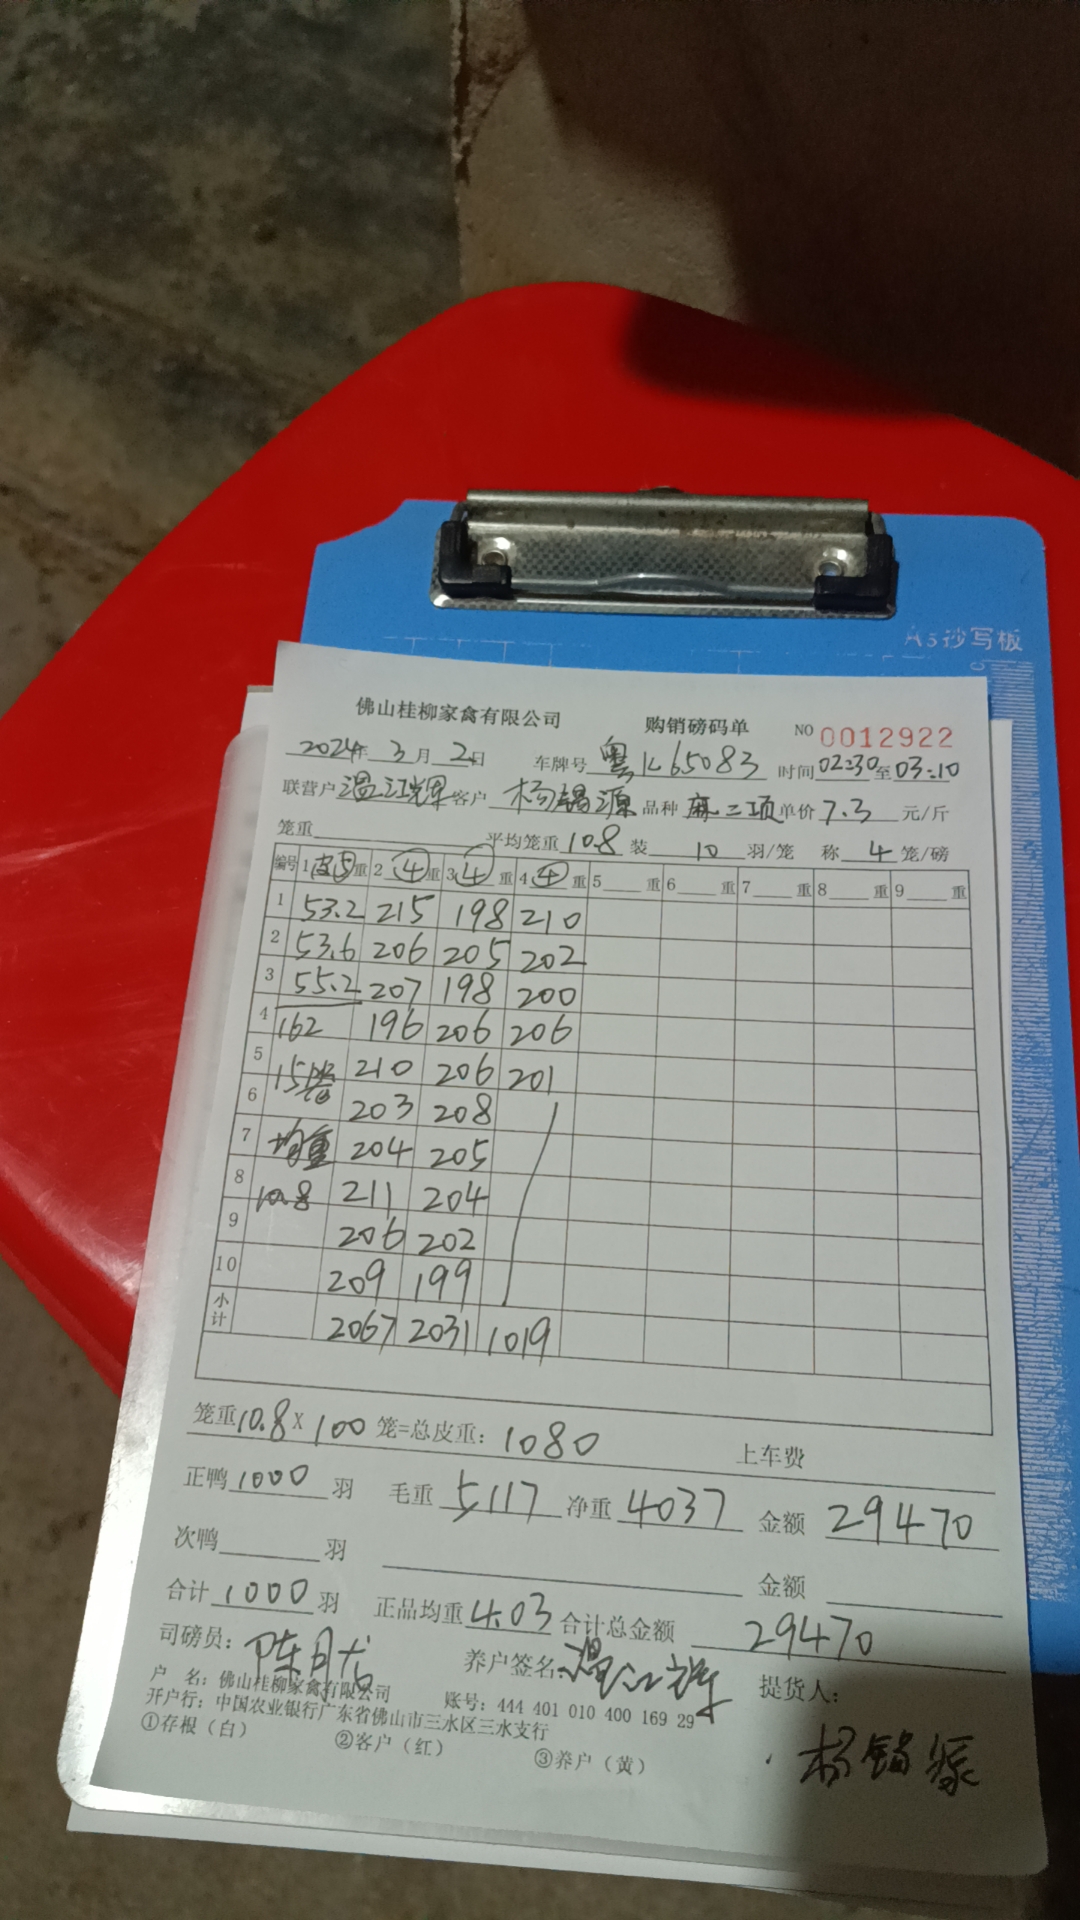 A5抄写板
佛山桂柳家禽有限公司 购销磅码单 NO 0012922
2024年 3月 2日 车牌号 粤K65083 时间 02:30 至 03:10
联营户 温江辉 客户 杨锡源 品种 麻二项 单价 7.3 元/斤
笼重 平均笼重 10.8 装 10 羽/笼 称 4 笼/磅
编号 1 皮⑤ 重 2 ④ 重 3 ④ 重 4 ④ 重 5 重 6 重 7 重 8 重 9 重
1 53.2 215 198 210
2 53.6 206 205 202
3 55.2 207 198 200
4 162 196 206 206
5 15笼 210 206 201
6 203 208
7 均重 204 205
8 10.8 211 204
9 206 202
10 209 199
小计 2067 2031 1019
笼重 10.8 X 100 笼=总皮重: 1080 上车费
正鸭 1000 羽 毛重 5117 净重 4037 金额 29470
次鸭 羽 金额
合计 1000 羽 正品均重 4.03 合计总金额 29470
司磅员: 养户签名: 温江辉 提货人:
杨锡源
户 名: 佛山桂柳家禽有限公司 账号: 444 401 010 400 169 29
开户行: 中国农业银行广东省佛山市三水区三水支行
①存根（白） ②客户（红） ③养户（黄）